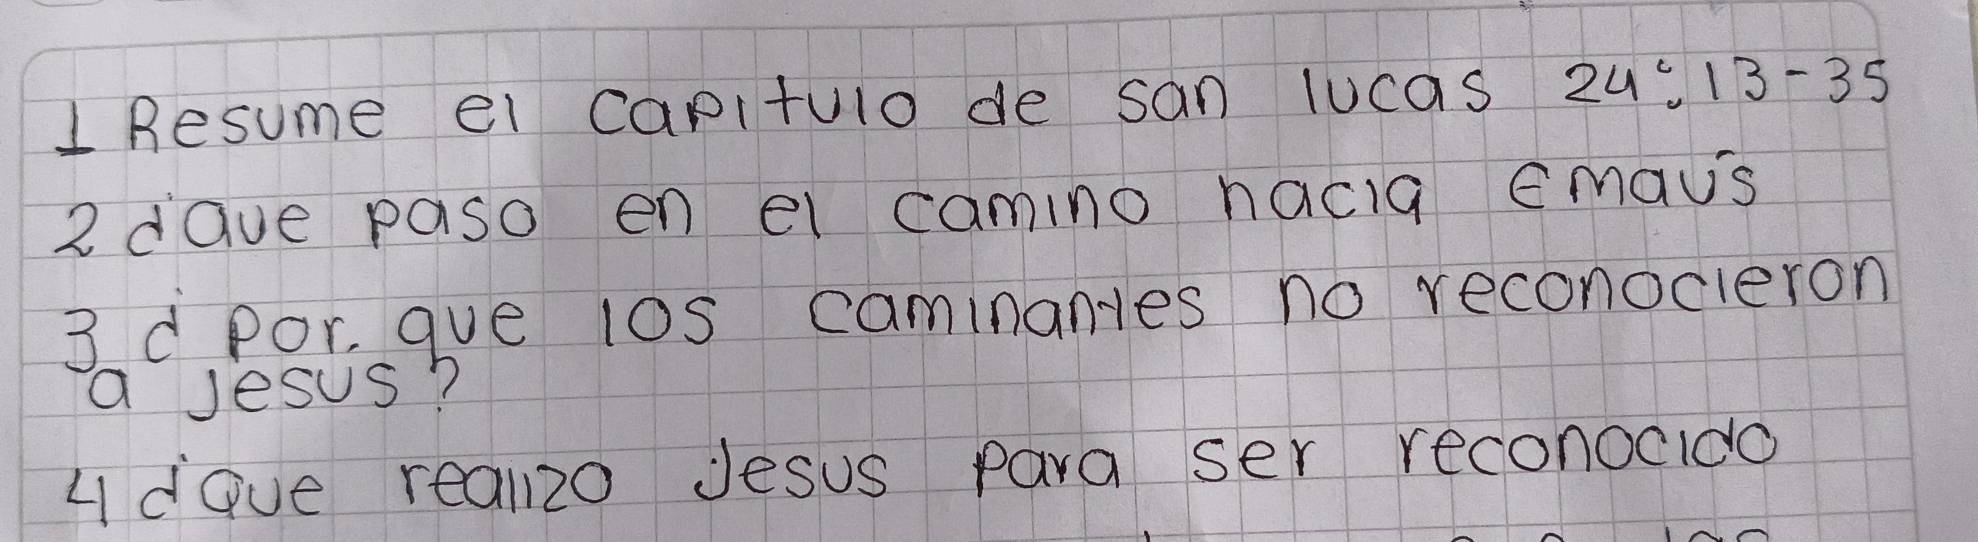 1 Resume el capitulo de san lucas 24:13-35
2 ¿Que paso en el camino hacia Emaús
3 ¿ Por que los caminantes no reconocieron
a Jesus?
4 ¿Que realizo Jesus para ser reconocido